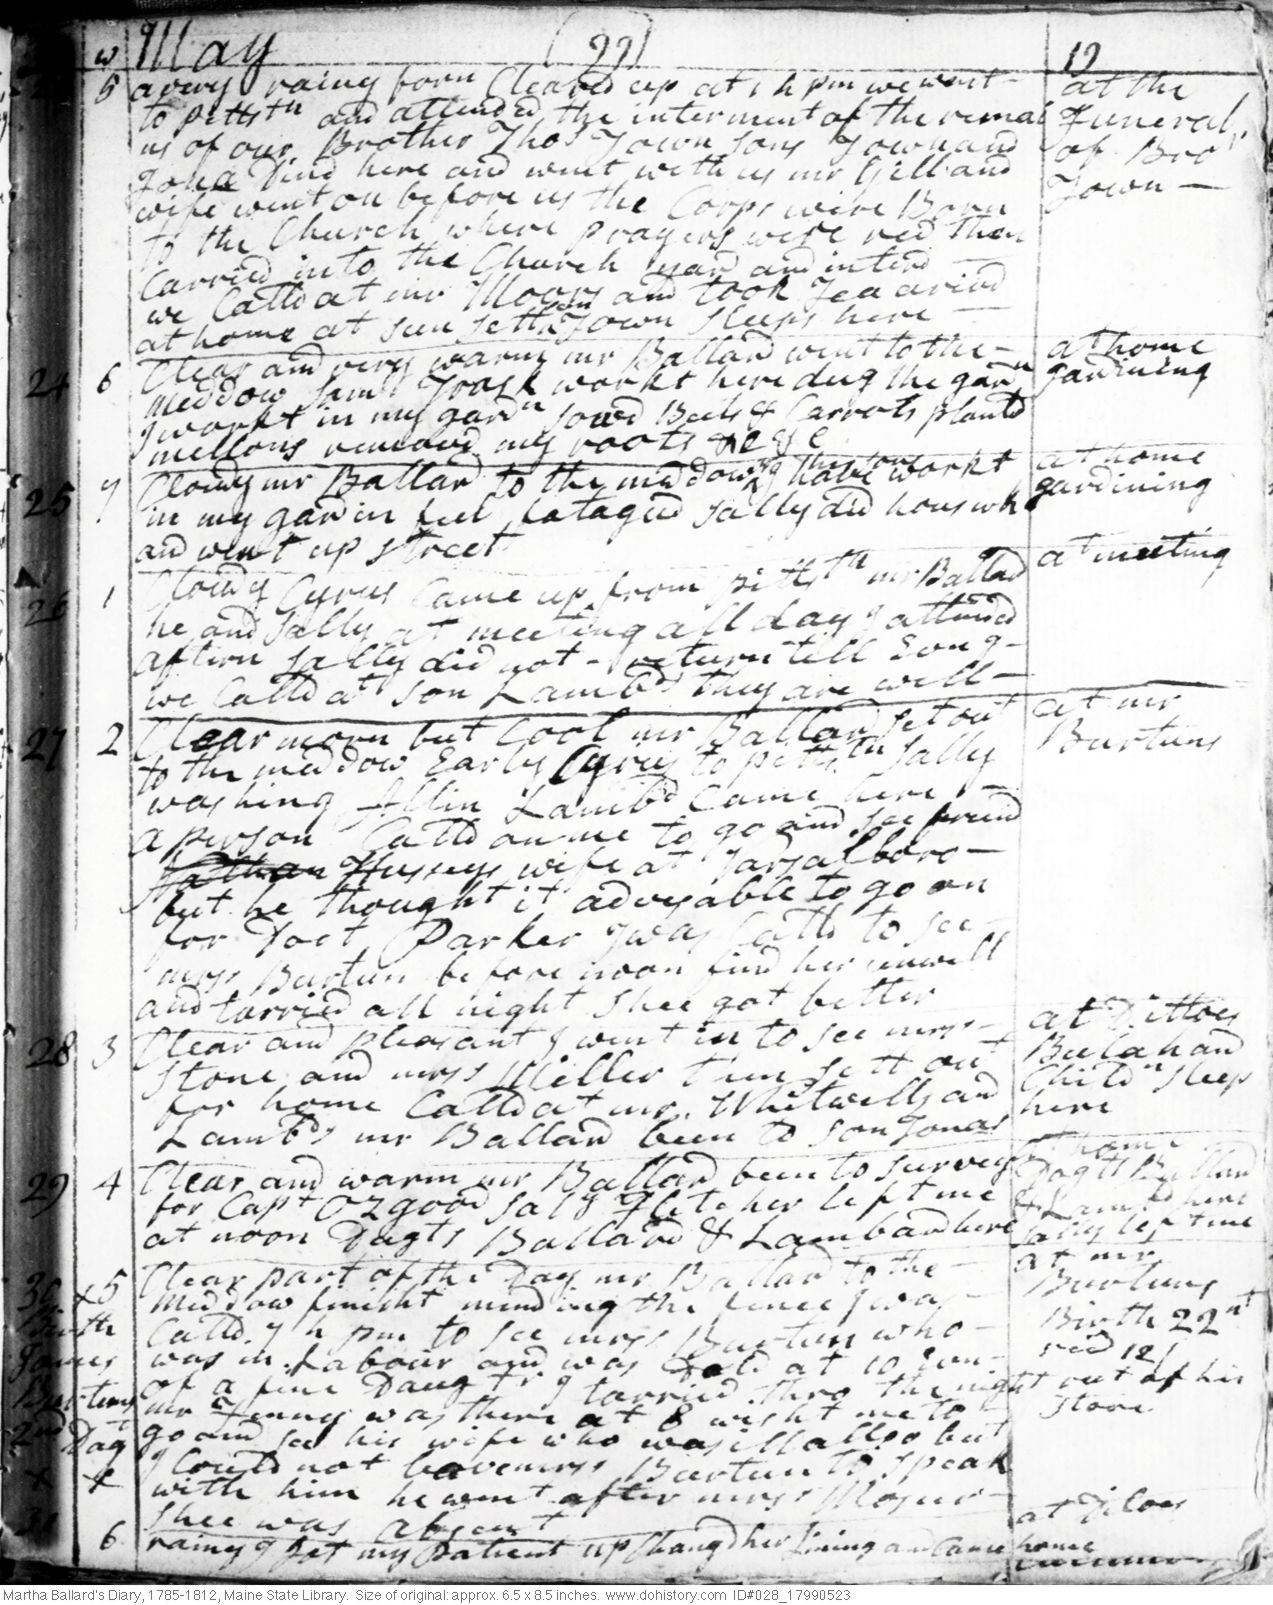 w May (22) 12
5 a very rainy forn Cleared up at 1 h pm we went at the
to pittstn and attended the interment of the remai Funeral
ns of our Brother Thos Town sons Town and of Bro
Jona Dind here and went with us mr Gill and Town —
wife went on before us the Corps wire Born
to the Church where prayers were red then
Carried into the Church yard and interd
we Calld at mr Moors and took Tea arivd
at home at sun sett Town sleeps here —
24 6 Clear and very warm mr Ballard went to the — at home
meddow Saml work here dug the gardn gardining
I workt in my gardn sowd Beets & Carrots plantd
mellons removd my roots &c &c
25 7 Cloudy mr Ballard to the meddow I have workt at home
in my garden feel fatagud Sally did hous wk gardining
and went up street
26 1 Cloudy Cyrus Came up from pittstn mr Ballard at meeting
he and Sally at meeting all day I attended
aftern Sally did not - return till Evng -
we Calld at son Lambds they are well —
27 2 Clear morn but Cool mr Ballard set out at mr
to the meddow Early Cyrus to pittstn Sally Burtuns
washing Allin Lambd Came here —
a person Calld on me to go and see frind
Nathan Husseys wife at Varsalboro —
but he thought it advisable to go on
for Doct Parker I was Calld to see
mrss Burtun before noon find her unwell
and tarried all night Shee got better
28 3 Clear and pleasant I went in to see mrss — at Dittoes
Stone and mrss Miller then sett out Beulah and
for home Calld at mr Whitwells and Child n sleep
Lambds mr Ballard been to son Jonas here
29 4 Clear and warm mr Ballard been to survey at home
for Capt Ozgood Saly Fletcher left me Dagts Ballard
at noon Dagts Ballard & Lambard here & Lambd here
Sally left me
30 x5 Clear part of the Day mr Ballard to the — at mr
meddow finisht mending the fence I was — Burtuns
Birth Calld 7 h pm to see mrss Burtun who — Birth 22nt
James was in Labour and was Deld at 10 Evn
Burtuns of a fine Daugtr I tarried thro the night out of his
2nd Dag mr Finny was there at 8 wisht me to store
go and see his wife who was ill allso but
x x I Could not leave mrss Burtun to speak
with him he went after mrss Mosier —
Shee was absent at Ditoes
31 6 rainy I Got my Patient up Changd her Lining and Came home
Martha Ballard's Diary, 1785-1812, Maine State Library. Size of original: approx. 6.5 x 8.5 inches. www.dohistory.com ID#028_17990523